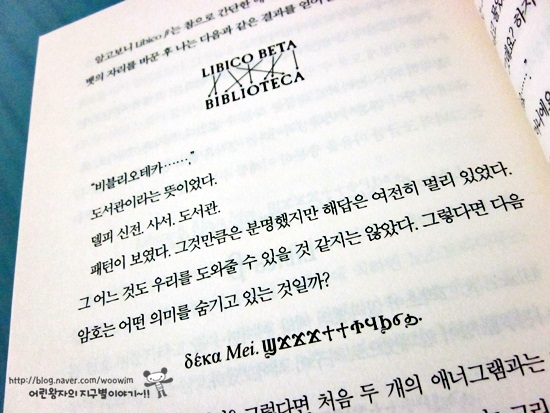 알고보니 Libico β는 참으로 간단한 애
벳의 자리를 바꾼 후 나는 다음과 같은 결과를 얻어
LIBICO BETA
BIBLIOTECA
"비블리오테카……."
도서관이라는 뜻이었다.
델피 신전. 사서. 도서관.
패턴이 보였다. 그것만큼은 분명했지만 해답은 여전히 멀리 있었다.
그 어느 것도 우리를 도와줄 수 있을 것 같지는 않았다. 그렇다면 다음
암호는 어떤 의미를 숨기고 있는 것일까?
δέκα Mei.
http://blog.naver.com/woowjm
어린왕자의 지구별이야기~!!
그렇다면 처음 두 개의 애너그램과는